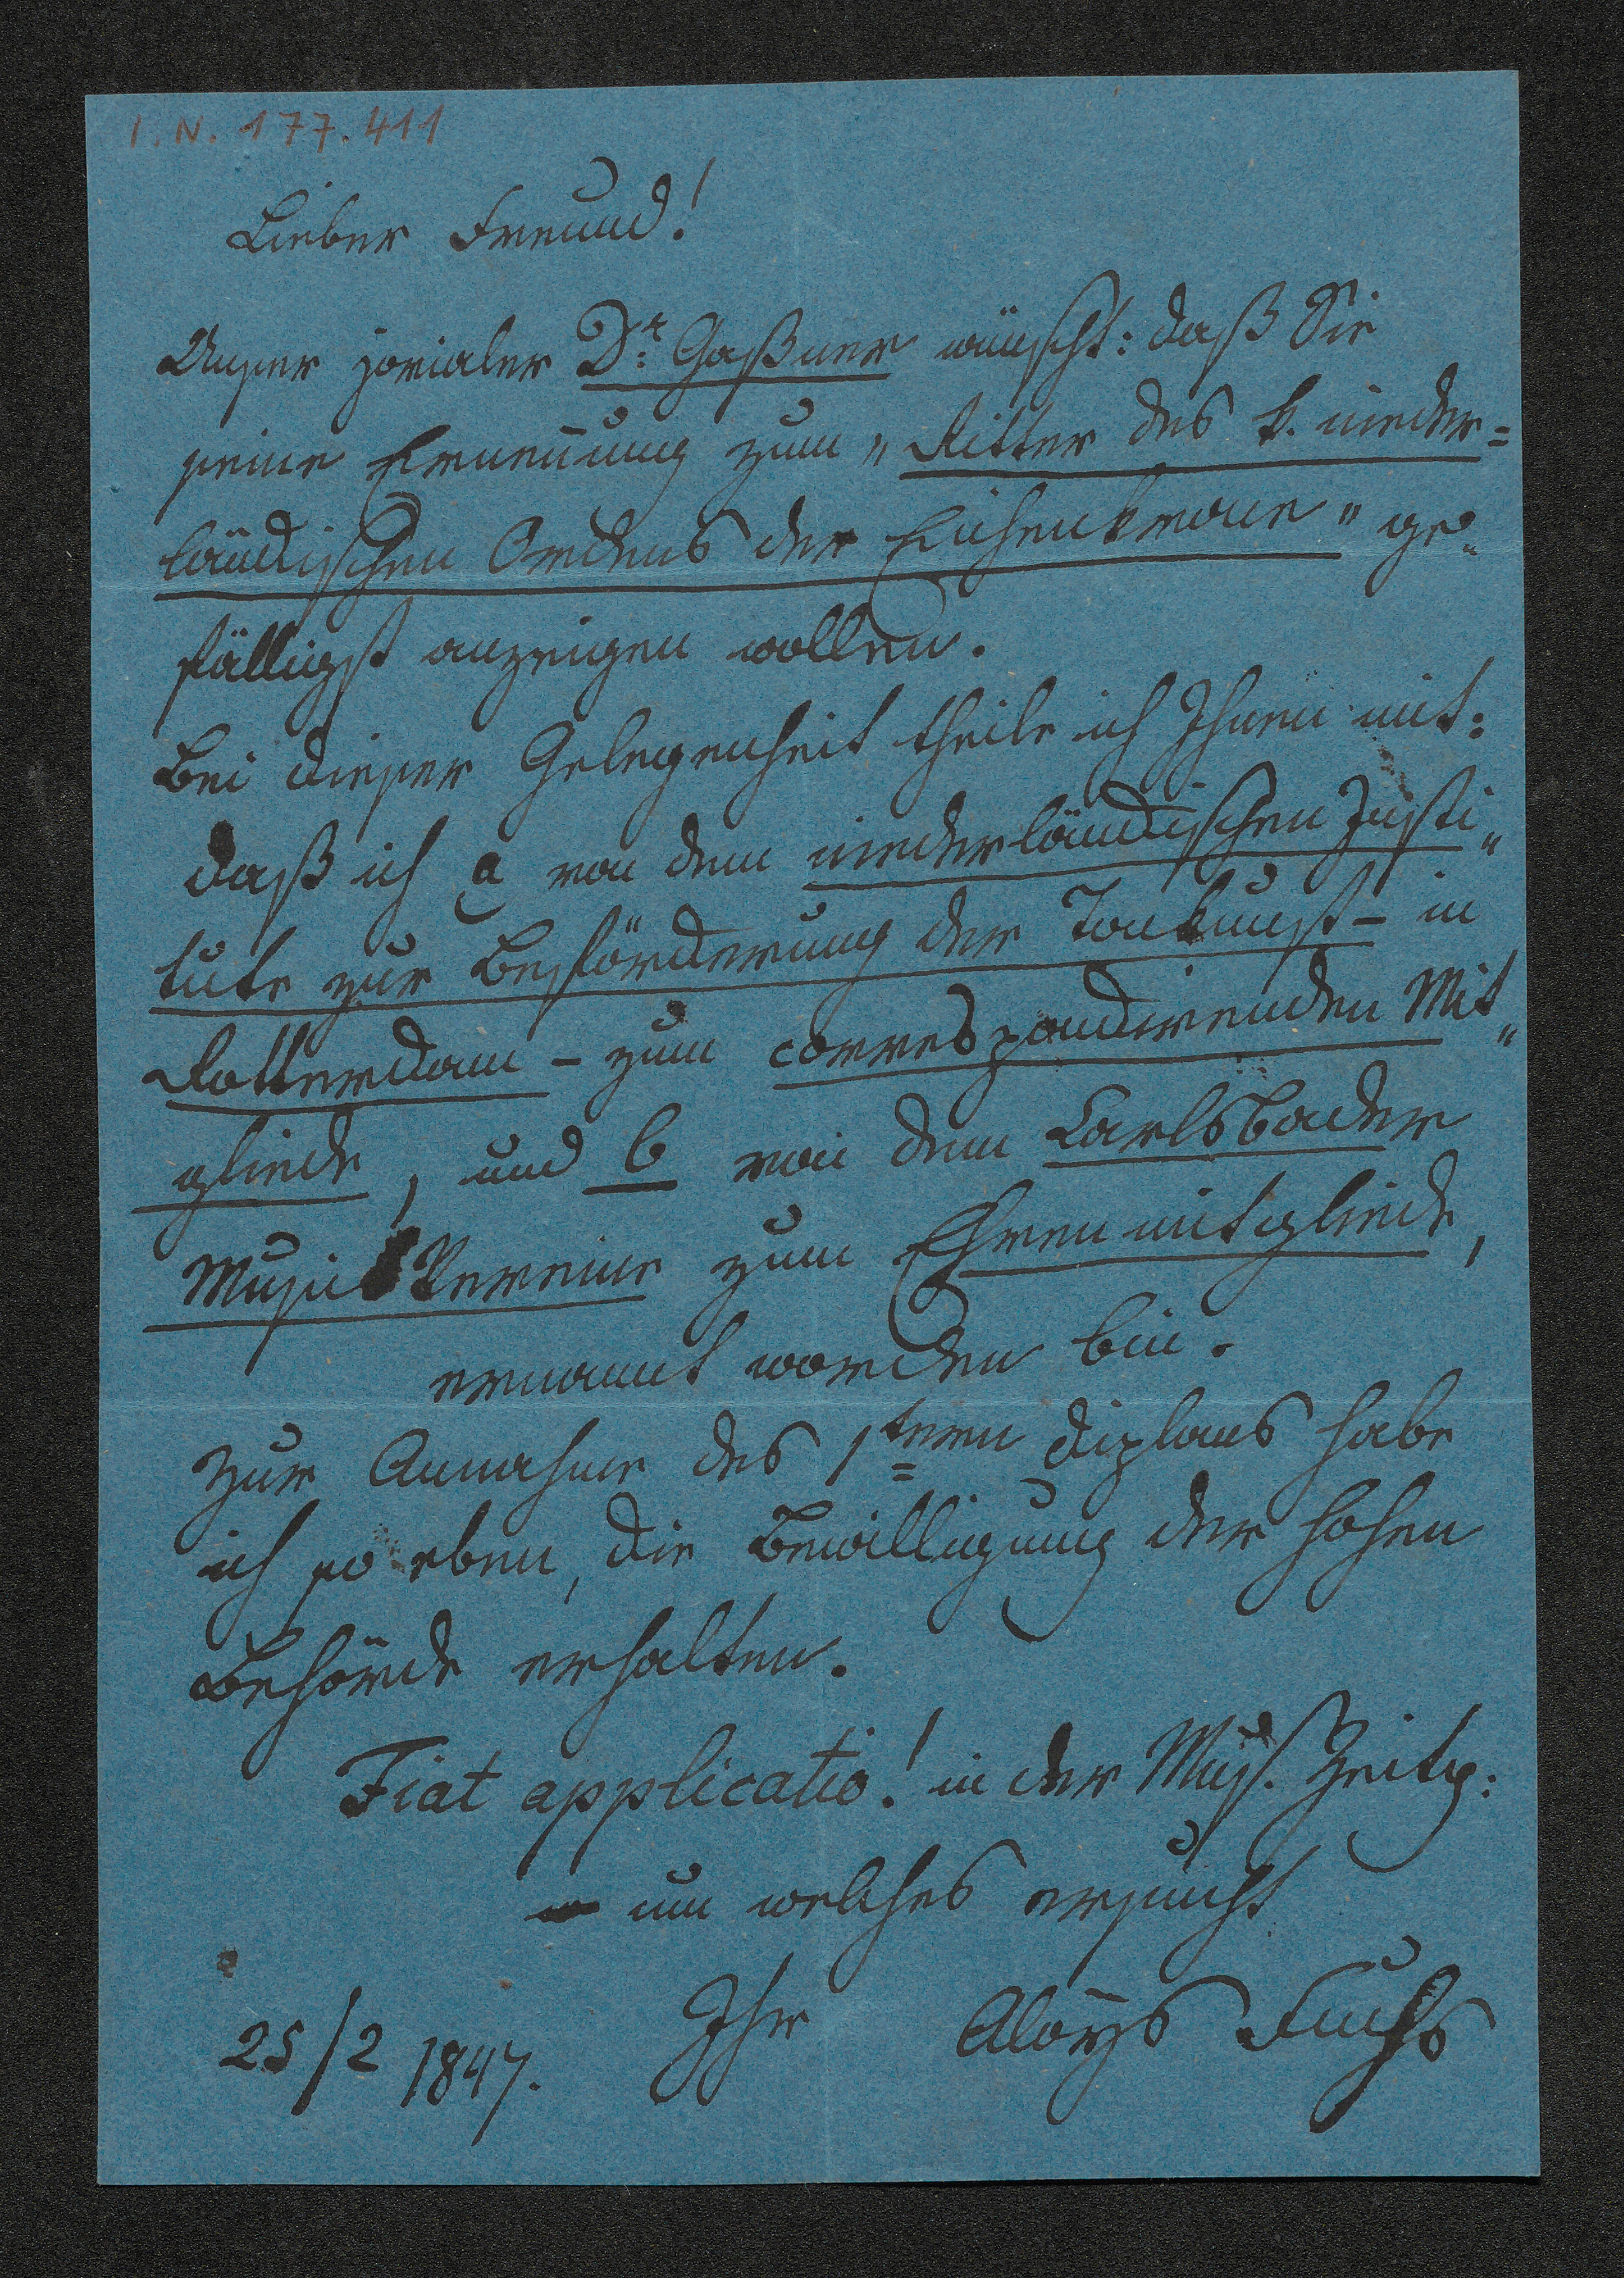 I. N. 177.411
Lieber Freund!
Unser jovialer Dr: Gaßner wünscht: daß Sie
seine Ernennung zum „Ritter des k. nieder=
ländischen Ordens der Eichenkrone" ge„
fälligst anzeigen wollen.
Bei dieser Gelegenheit theile ich Ihnen mit:
daß ich a von dem niederländischen Insti„
tute zur Beförderung der Tonkunst – in
Rotterdam – zum correspondirenden Mit„
gliede, und b von dem Carlsbader
Musik Vereine zum Ehrenmitgliede,
ernannt worden bin.
Zur Annahme des 1teren Diploms habe
ich so eben, die Bewilligung der hohen
Behörde erhalten.
Fiat applicatio! in der Mus. Zeitg:
um welches ersucht
Ihr Aloys Fuchs
25/2 1847.